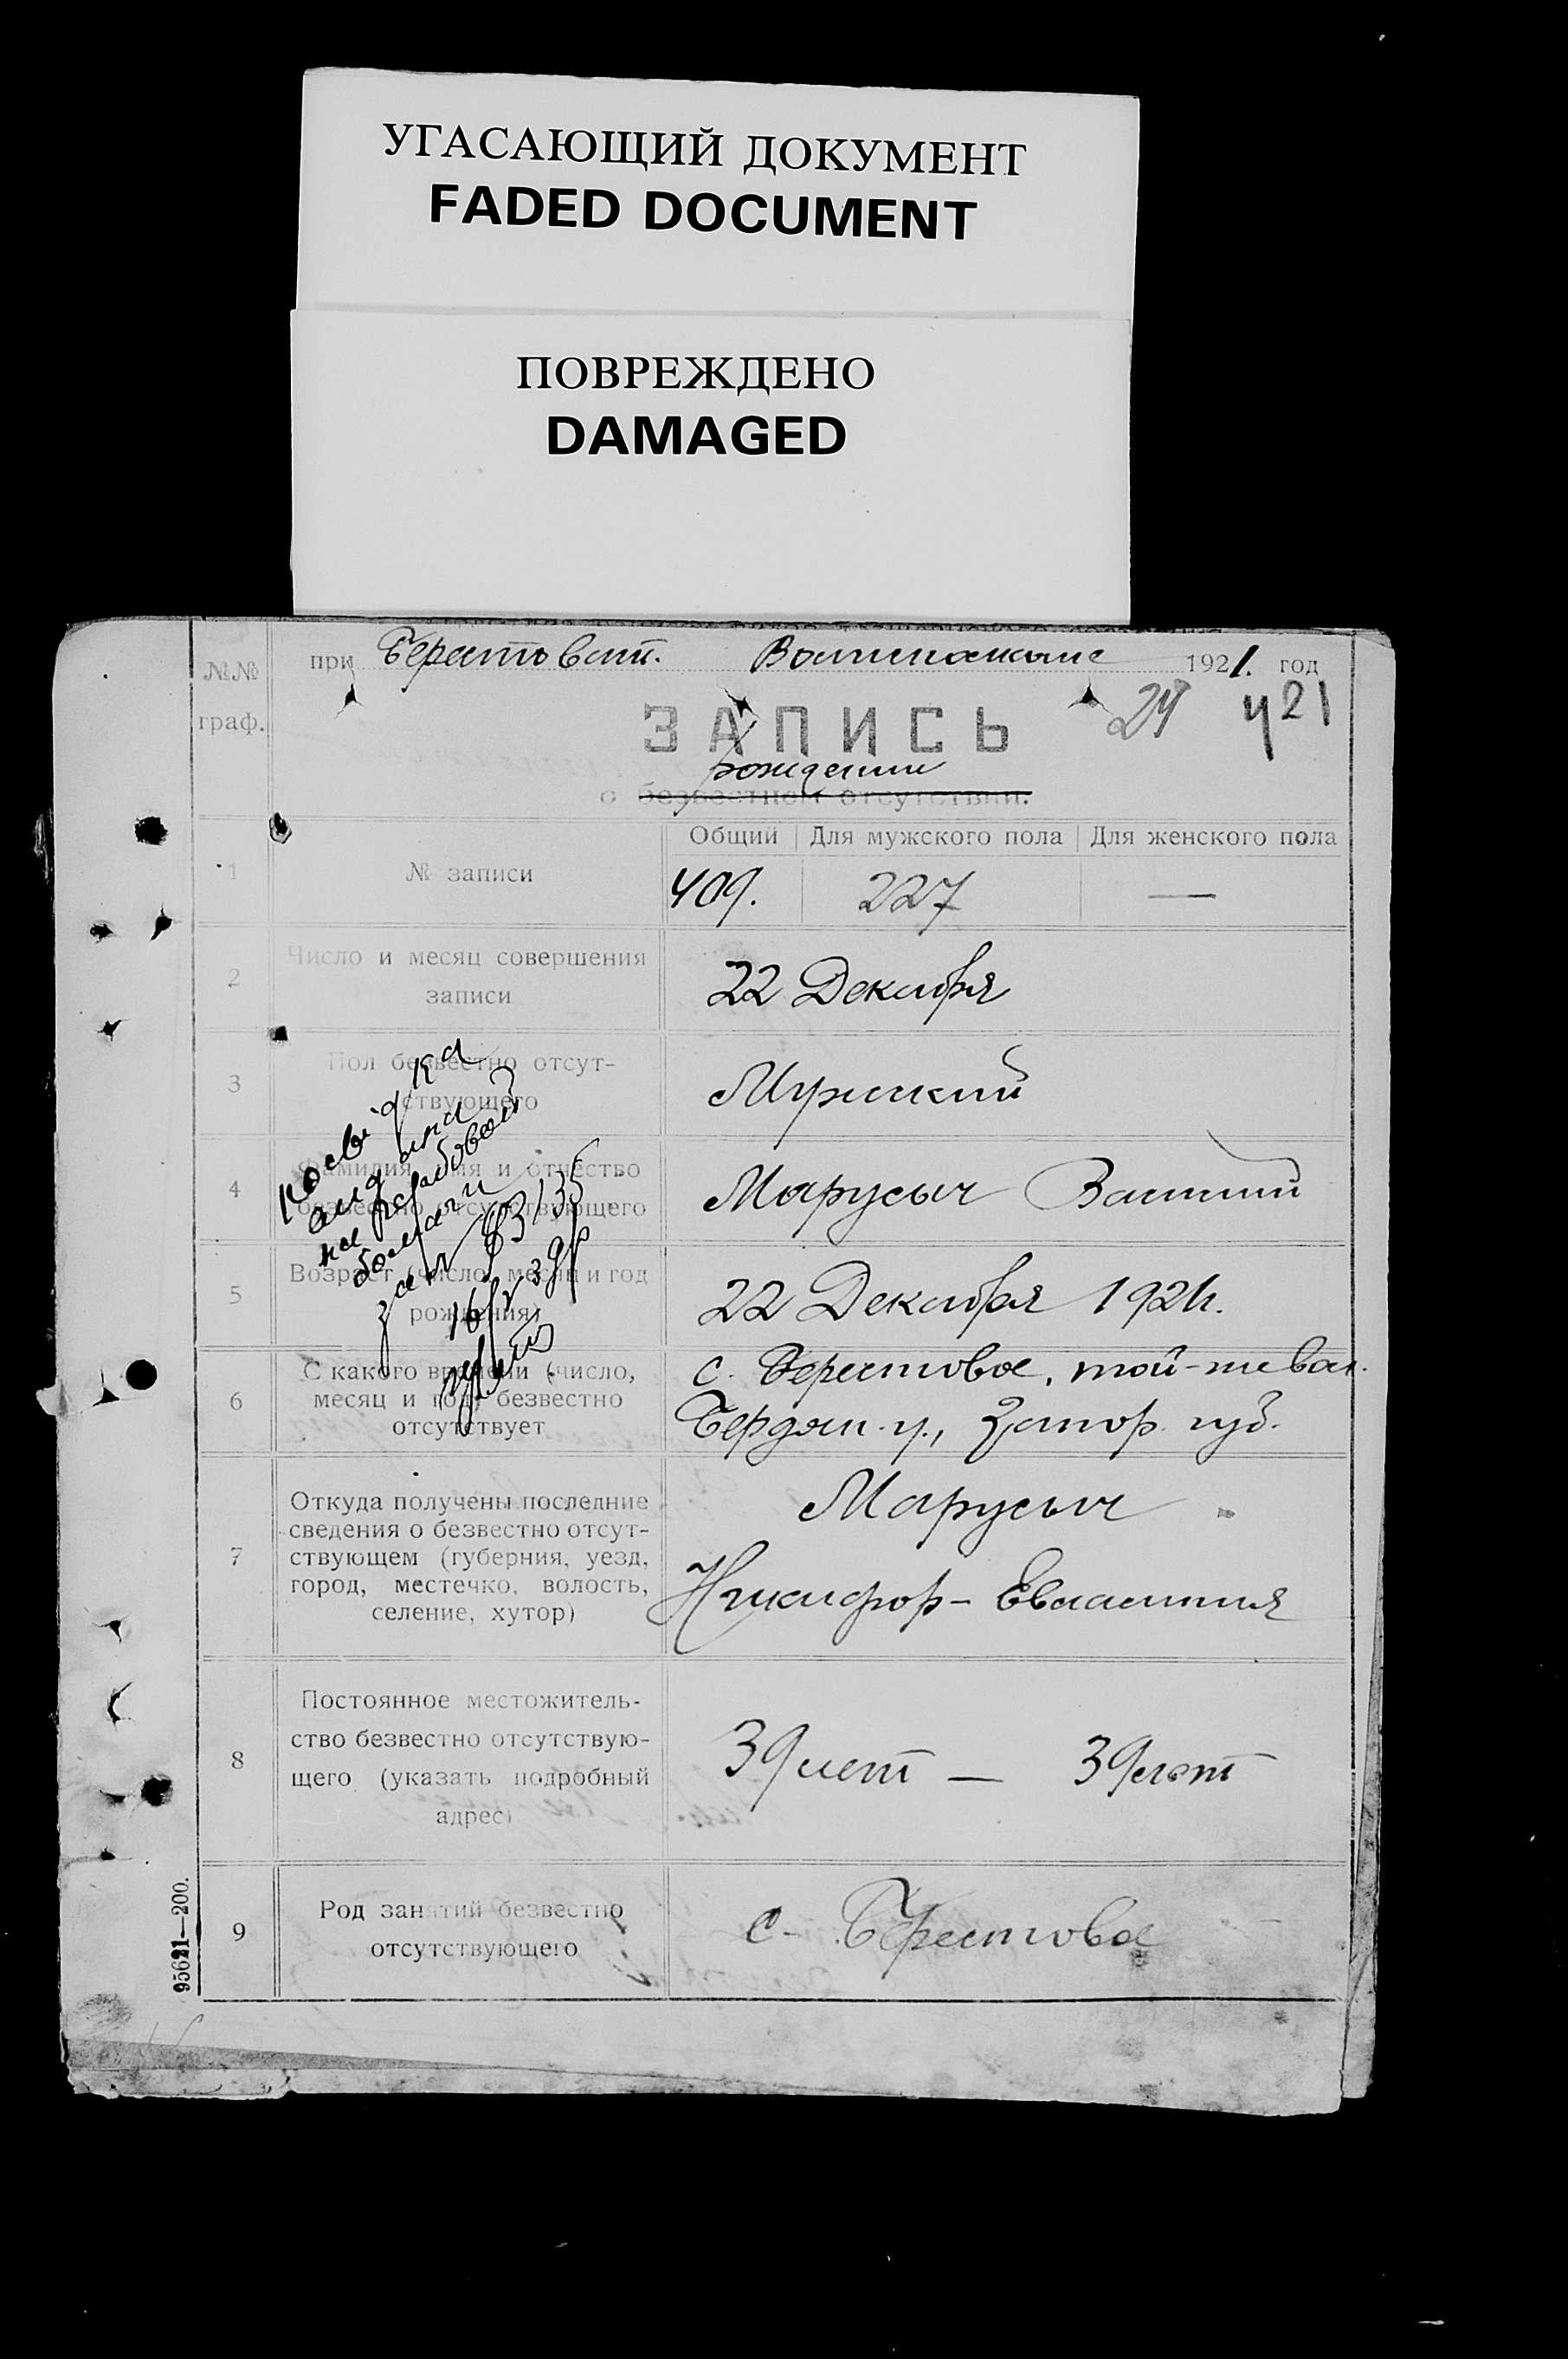 УГАСАЮЩИЙ ДОКУМЕНТ
FADED DOCUMENT
ПОВРЕЖДЕНО
DAMAGED
№№ граф.
при Берестовск. 1921. год
24 421
ЗАПИСЬ
рождении
о безвестном отсутствии.
Общий Для мужского пола Для женского пола
1 № записи 409. 227 —
2 Число и месяц совершения записи
22 Декабря
3 Пол безвестно отсут-
ствующего
Мужский
4 Фамилия, имя и отчество
безвестно отсутствующего
Марусыч Василий
5 Возраст (число, месяц и год
рождения)
22 Декабря 1921г.
6 С какого времени (число,
месяц и год) безвестно
отсутствует
с. Берестовое, той-же вол.
Бердян. у., Запор. губ.
7 Откуда получены последние
сведения о безвестно отсут-
ствующем (губерния, уезд,
город, местечко, волость,
селение, хутор)
Марусыч
Никифор - Евдокия
8 Постоянное местожитель-
ство безвестно отсутствую-
щего (указать подробный
адрес)
39 лет — 39 лет
9 Род занятий безвестно
отсутствующего
с. Берестовое
95621—200.